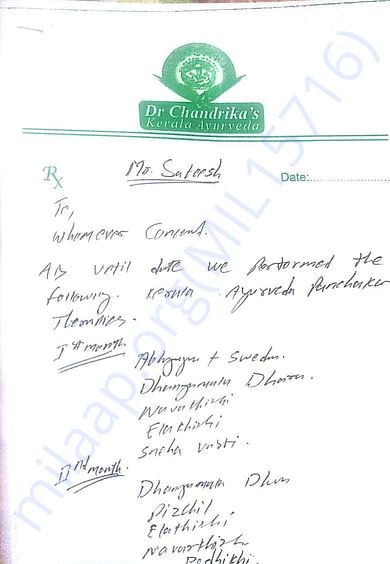 Dr Chandrika's
Kerala Ayurveda
Rx
Mr. Sateesh
Date:
To,
whomever Concent.
As until date we performed the
following. Kerala Ayurveda Panchakar
Therapies.
Ist month
Abhyagam + Swedu.
Dhanyamala Dhara.
Navarkizhi
Elakizhi
Sneha vasti.
IInd month.
Dhanyamala Dhara
Pizhil
Elakizhi
Navarkizhi
Podikizhi.
milaap.org(MIL15716)